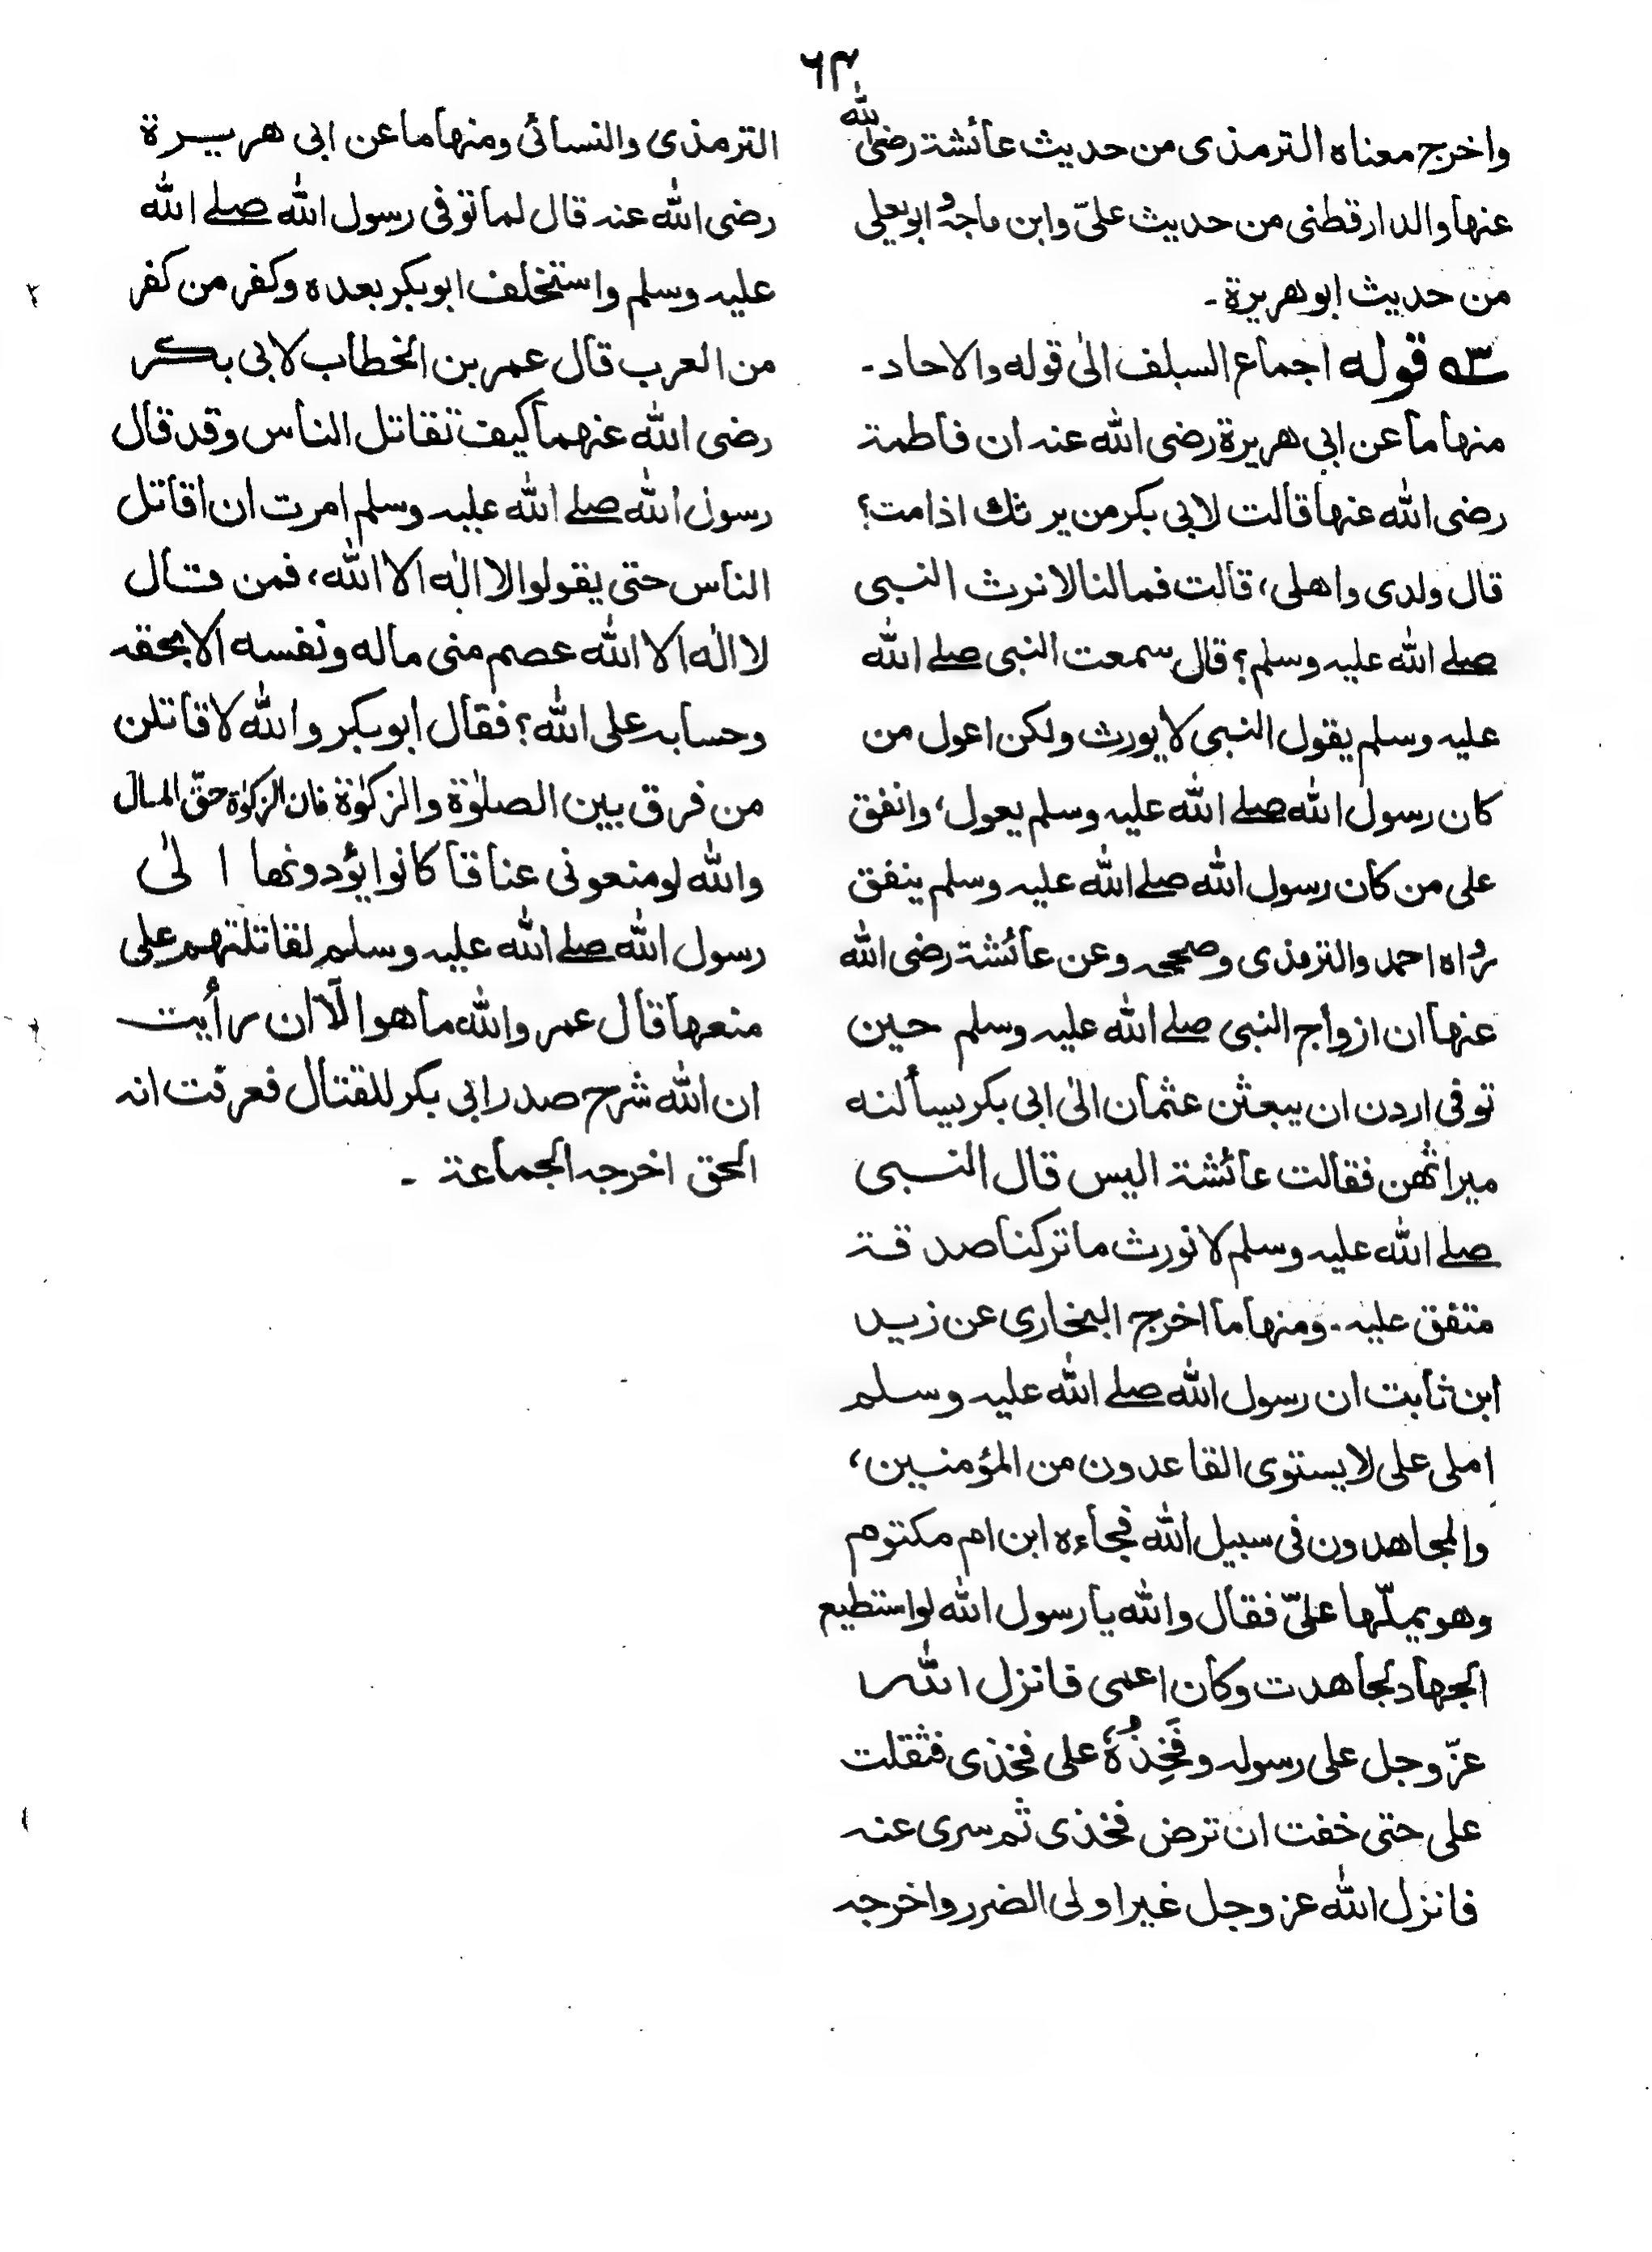 ٦٣
واخرج معناه الترمذی من حدیث عائشة رضی الله
عنها والدارقطنی من حدیث علیّ وابن ماجه وابویعلی
من حدیث ابو هریرة۔
قوله اجماع السلف الیٰ قوله والاحاد۔
منها ما عن ابی هریرة رضی الله عنه ان فاطمة
رضی الله عنها قالت لابی بکر من یرثك اذا مت؟
قال ولدی واهلی، قالت فمالنا لا نرث النبی
صلے الله علیه وسلم؟ قال سمعت النبی صلے الله
علیه وسلم یقول النبی لا یورث ولکن اعول من
کان رسول الله صلے الله علیه وسلم یعول، وانفق
علی من کان رسول الله صلے الله علیه وسلم ینفق
رواه احمد والترمذی وصححه وعن عائشة رضی الله
عنها ان ازواج النبی صلے الله علیه وسلم حین
توفی اردن ان یبعثن عثمان الیٰ ابی بکر یسألنه
میراثهن فقالت عائشة الیس قال النبی
صلے الله علیه وسلم لا نورث ما ترکنا صدقة
متفق علیه۔ ومنها ما اخرج البخاری عن زید
ابن ثابت ان رسول الله صلے الله علیه وسلم
املی علی لا یستوی القاعدون من المؤمنین،
والمجاهدون فی سبیل الله فجاءه ابن ام مکتوم
وهو یملّها علیّ فقال والله یا رسول الله لو استطیع
الجهاد لجاهدت وکان اعمی فانزل الله
عزّ وجل علی رسوله وفَخِذُهٗ علی فخذی فثقلت
علی حتی خفت ان ترض فخذی ثم سری عنه
فانزل الله عز وجل غیر اولی الضرر واخرجه
الترمذی والنسائی ومنها ما عن ابی هریرة
رضی الله عنه قال لما توفی رسول الله صلے الله
علیه وسلم واستخلف ابوبکر بعده وکفر من کفر
من العرب قال عمر بن الخطاب لابی بکر
رضی الله عنهما کیف تقاتل الناس وقد قال
رسول الله صلے الله علیه وسلم امرت ان اقاتل
الناس حتی یقولوا لا الٰه الا الله، فمن قال
لا الٰه الا الله عصم منی ماله ونفسه الا بحقه
وحسابه علی الله؟ فقال ابوبکر والله لاقاتلن
من فرق بین الصلوٰة والزکوٰة فان الزکوٰة حقّ المال
والله لو منعونی عناقا کانوا یؤدونها الیٰ
رسول الله صلے الله علیه وسلم لقاتلتهم علی
منعها قال عمر والله ما هو الّا ان رأیت
ان الله شرح صدر ابی بکر للقتال فعرفت انه
الحق اخرجه الجماعة ۔